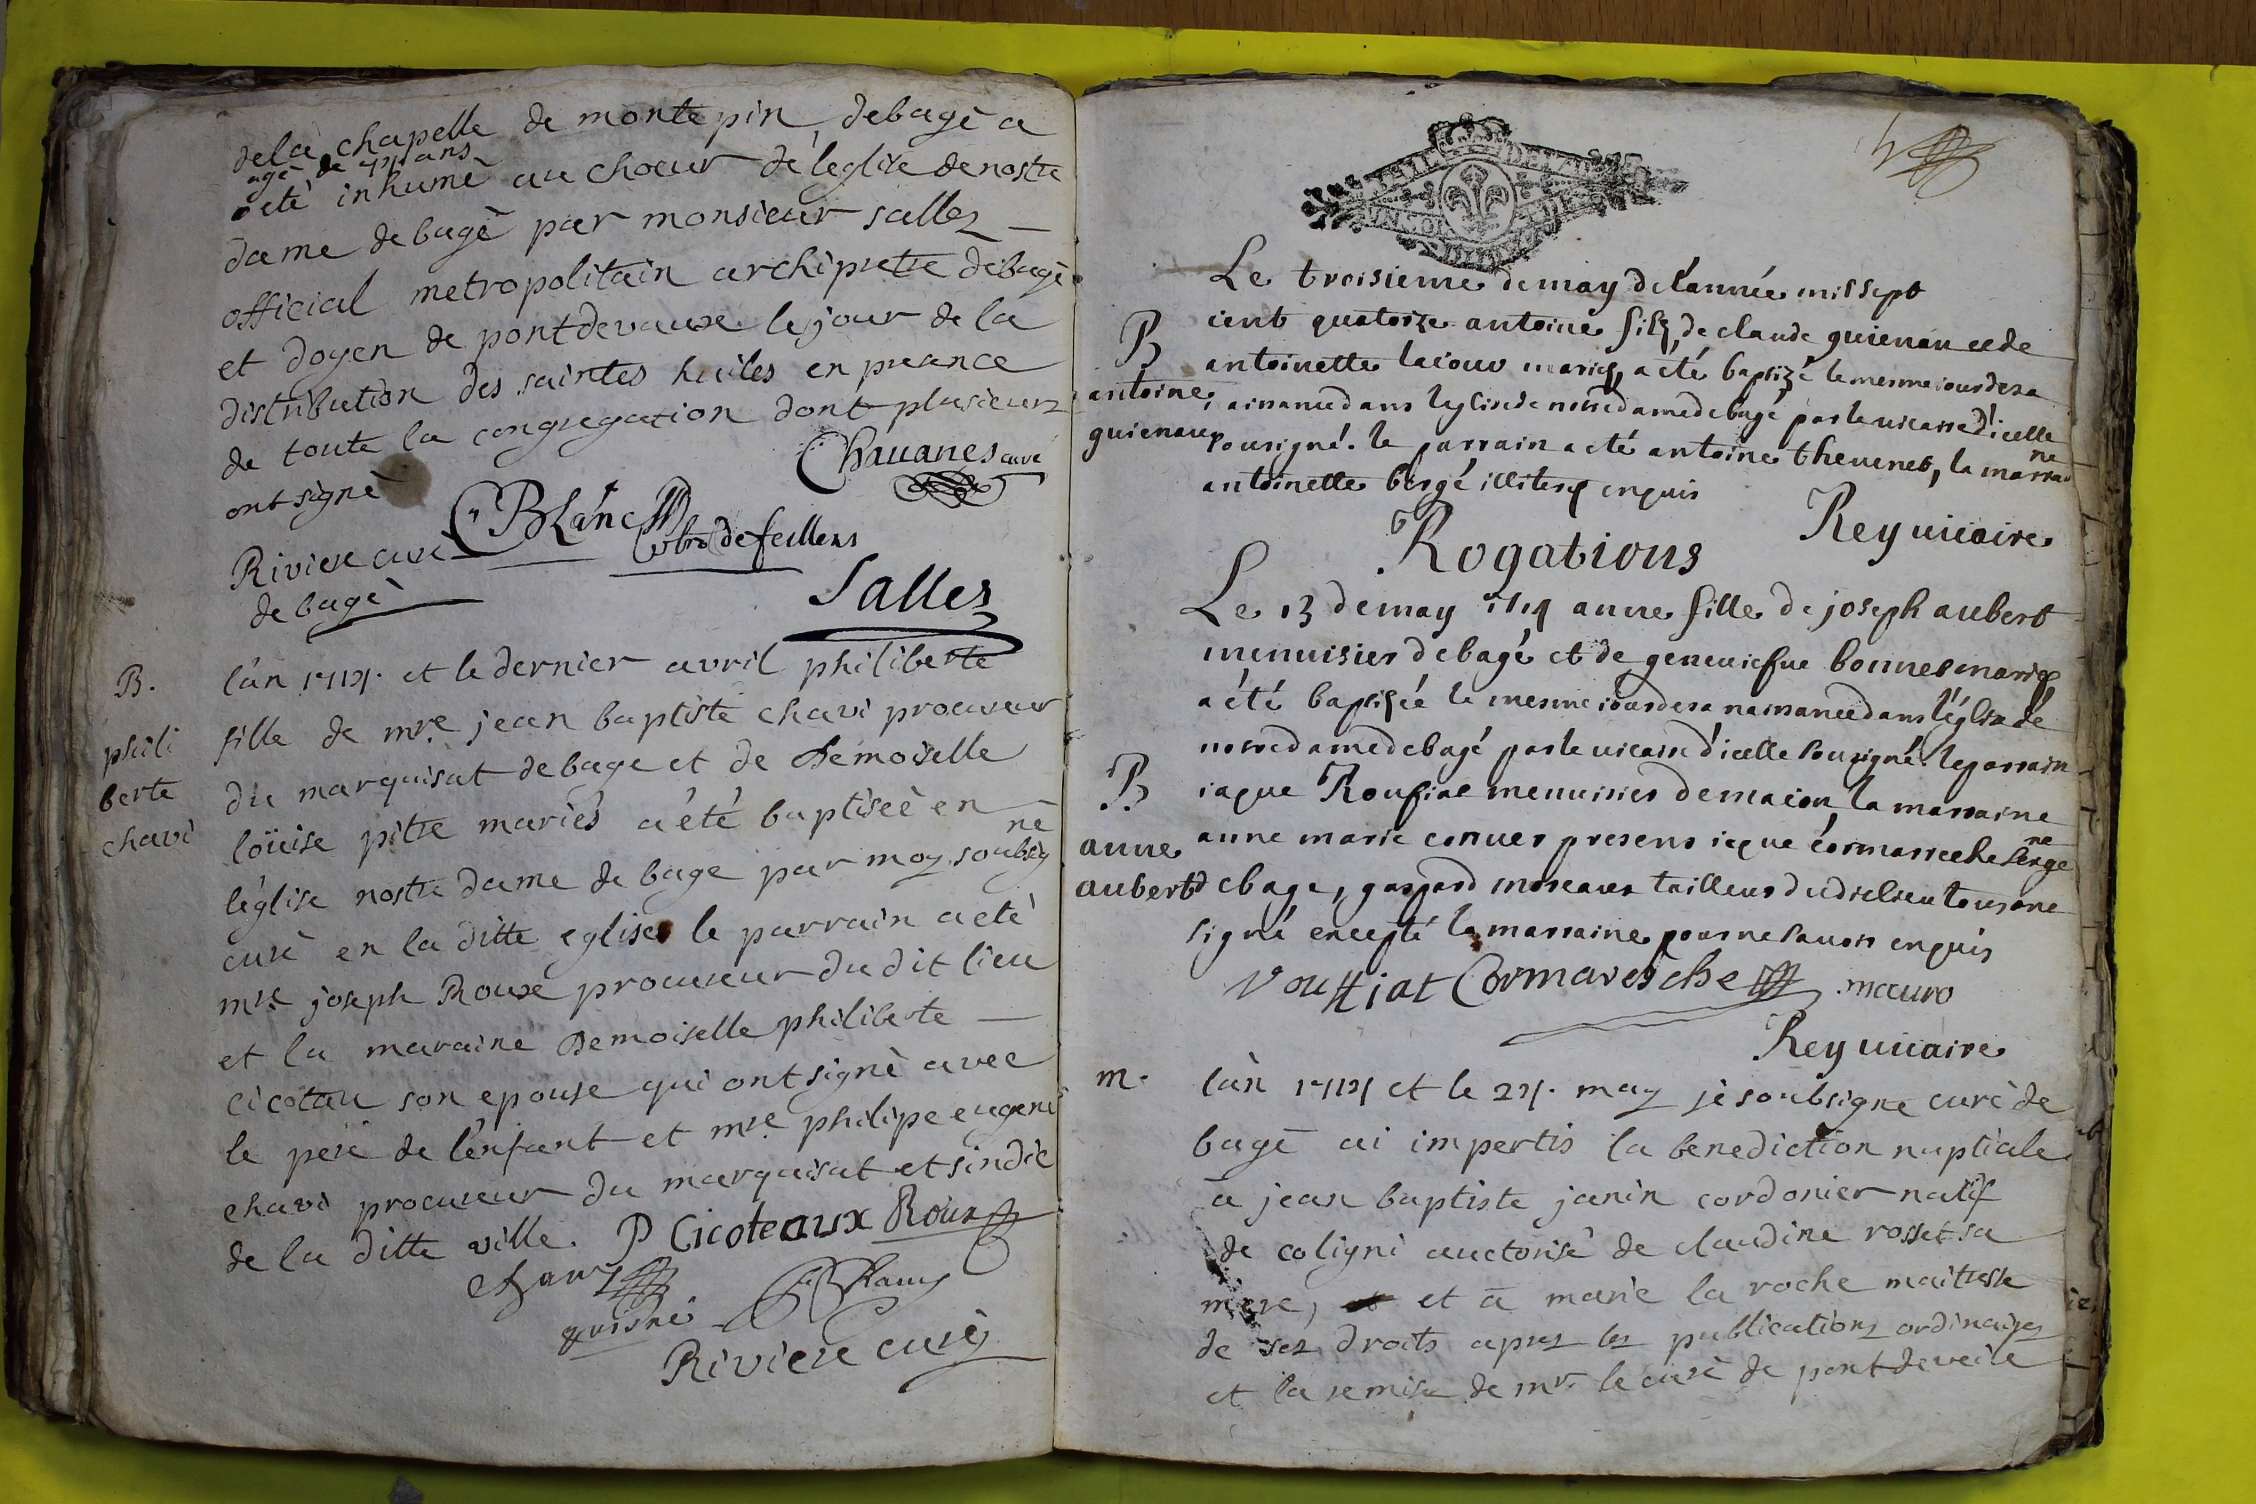 de la chapelle de montepin de bagè a
agè de ans
etè inhumè au choeur de l'eglise de nostre
dame de bagè par monsieur salles
official metropolitain archipretre de bagè
et doyen de pontdevaux le jour de la
distribution des saintes huiles en presence
de toute la congregation dont plusieurs
ont signè
Chavanes curé
Blanc
de feillens
Riviere curè
de bagè
Salles
B.
phili
berte
chavi
l'an 1714. et le dernier avril philiberte
fille de mre jean baptiste chavi procureur
du marquisat de bage et de Demoiselle
loüise pitre mariés a été baptiseè en
l'église nostre dame de bage par moy soubsigne
curè en la ditte eglise le parrain a etè
mre joseph Roux procureur du dit lieu
et la maraine Demoiselle philiberte
cicotau son epouse qui ont signè avec
le pere de l'enfant et mre philipe eugene
chavi procureur du marquisat et sindic
de la ditte ville. P Cicoteaux Roux
Riviere curè
Le troisieme de may de l'année mil sept
B
antoine
guienau
cent quatorze antoine filz de claude guienau et de
antoinette lacour mariez a été baptizé le mesme iour de sa
naissance dans l'eglise de nostre dame de bagé par le vicaire d'icelle
sousigné. le parrain a eté antoine thevenet, la marraine
antoinette bergé illiterez enquis
Rey vicaire
Rogations
Le 13 de may 1714 anne fille de joseph aubert
menuisier de bagé et de geneviefve bonnes mariez
a été baptisée le mesme iour de sa naissance dans l'église de
nostre dame de bagé par le vicaire d'icelle sousigné le parrain
B
anne
aubert
iaque Roufiat menuisier de macon la marraine
anne marie presens iaque cormareche serge
de bage, gaspard moreaux tailleur dudit lieu tous ont
signé excepté la marraine pour ne savoir enquis
Vouttiat Cormaresche mauro
Rey vicaire
m.
l'àn 1714 et le 24. may je soubsigne curè de
bagè ai impertis la benediction nuptiale
a jean baptiste janin cordonier natif
de coligni auctorisè de claudine rosset sa
mere, et a marie la roche maitresse
de ses droits apres les publications ordinaires
et la remise de mr. le curè de pontdeveile